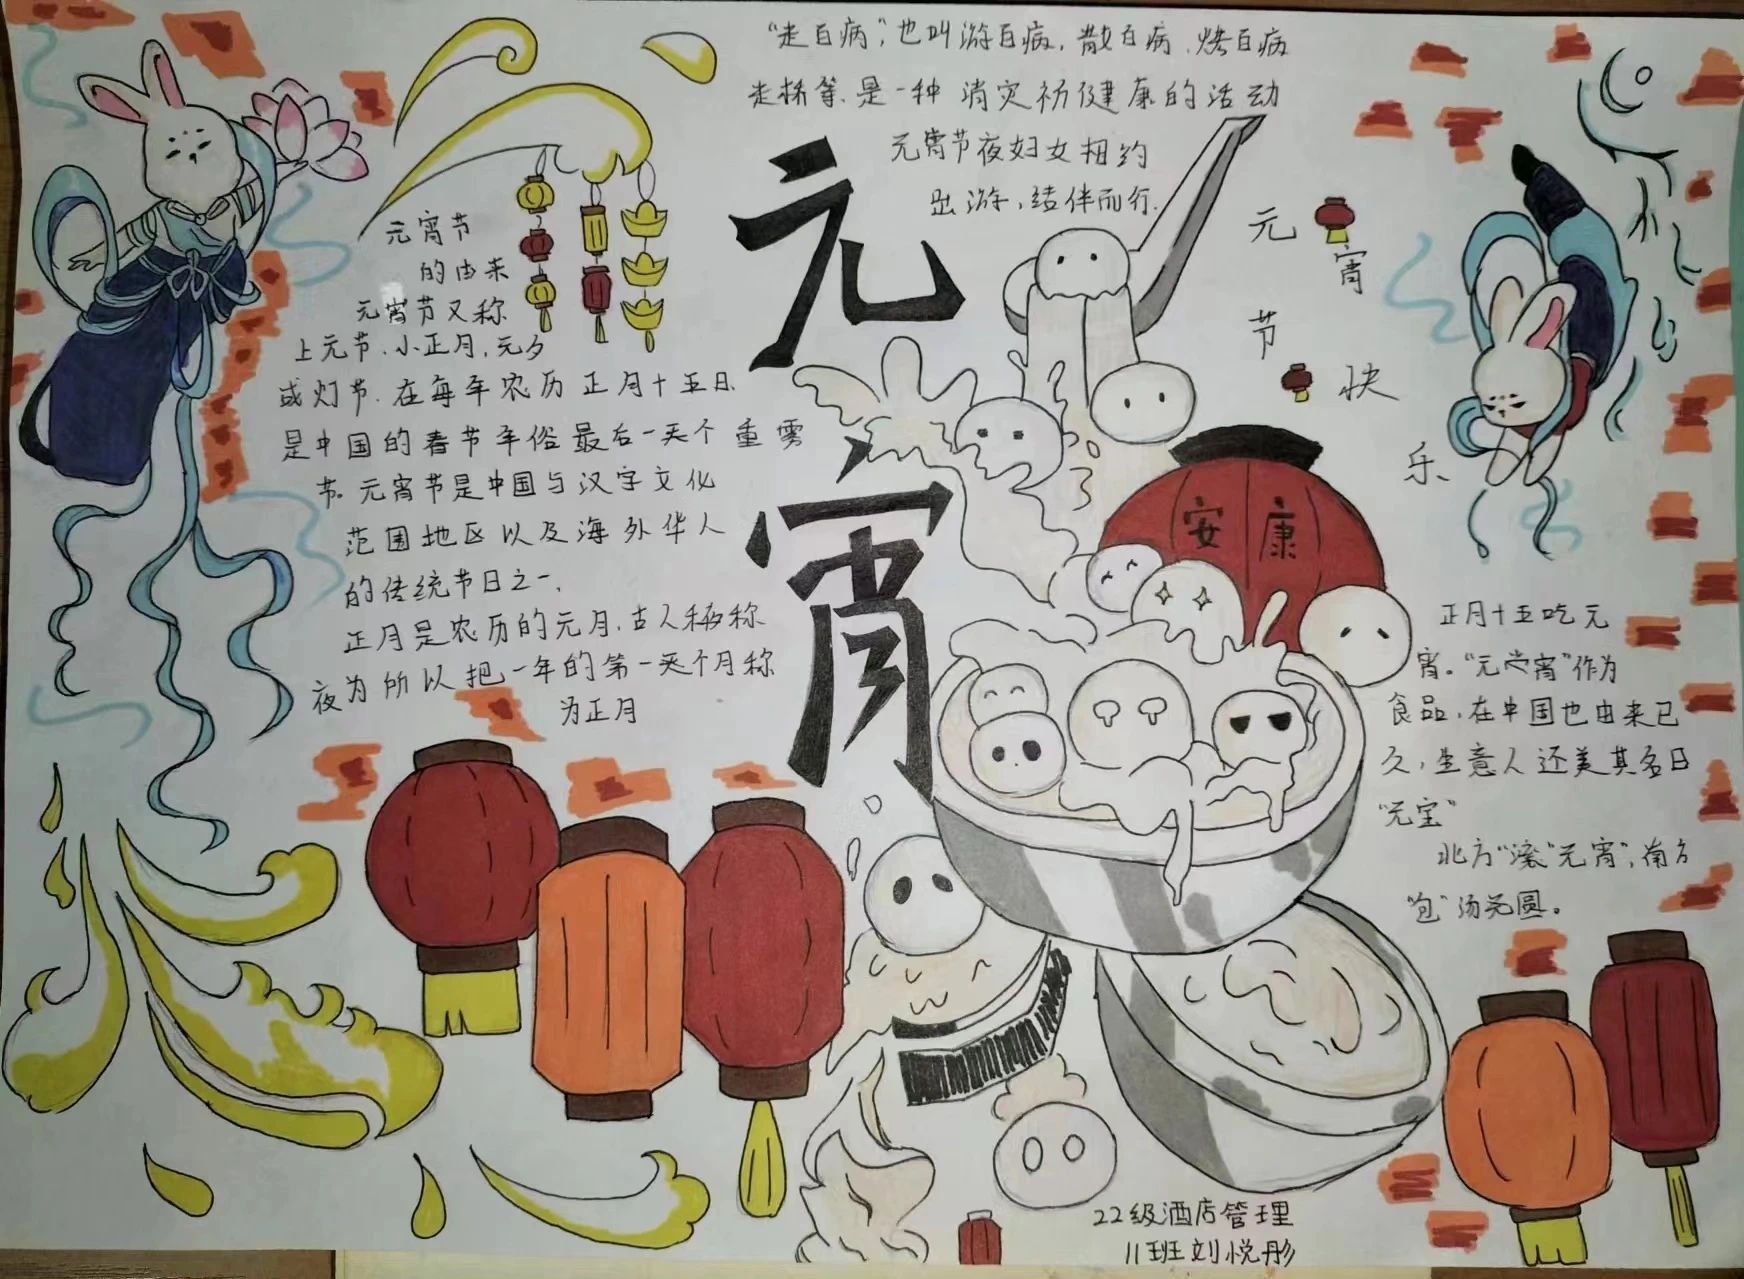 "走百病",也叫游百病,散百病、烤百病
走桥等、是一种消灾祈健康的活动
元宵节夜妇女相约
出游,结伴而行.
元宵节
的由来
元宵节又称
上元节、小正月,元夕
或灯节.在每年农历正月十五日
是中国的春节年俗最后一个重要
节。元宵节是中国与汉字文化
范围地区以及海外华人
的传统节日之一.
正月是农历的元月,古人称
夜为所以把一年的第一个月称
为正月
元宵
元宵节快乐
安康
正月十五吃元
宵。"元宵"作为
食品,在中国也由来已
久,生意人还美其名曰
"元宝"
北方"滚"元宵",南方
"包"汤圆。
22级酒店管理
11班刘悦彤